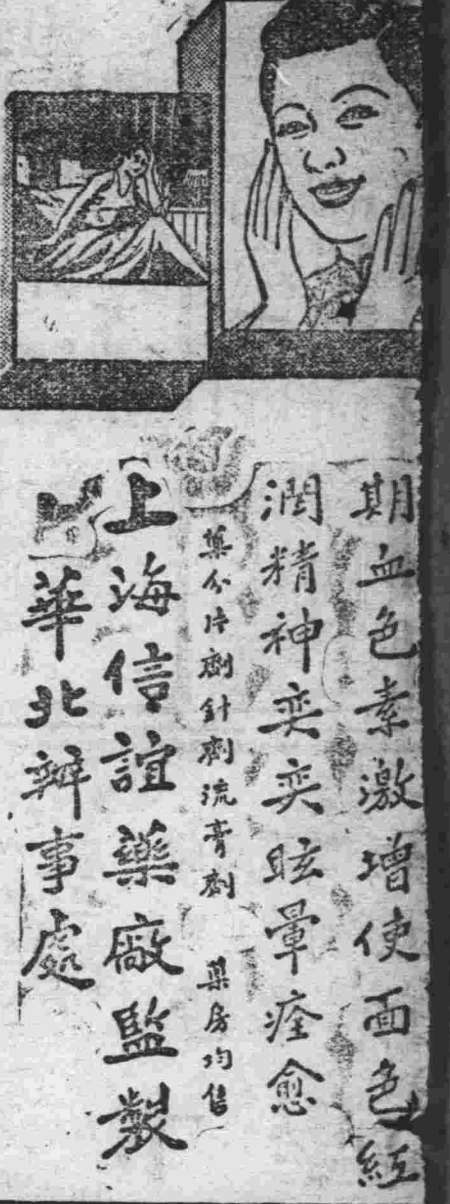 期血色素激增使面色紅
潤精神奕奕眩暈痊愈
藥分片劑針劑流膏劑 藥房均售
上海信誼藥廠監製
華北辦事處